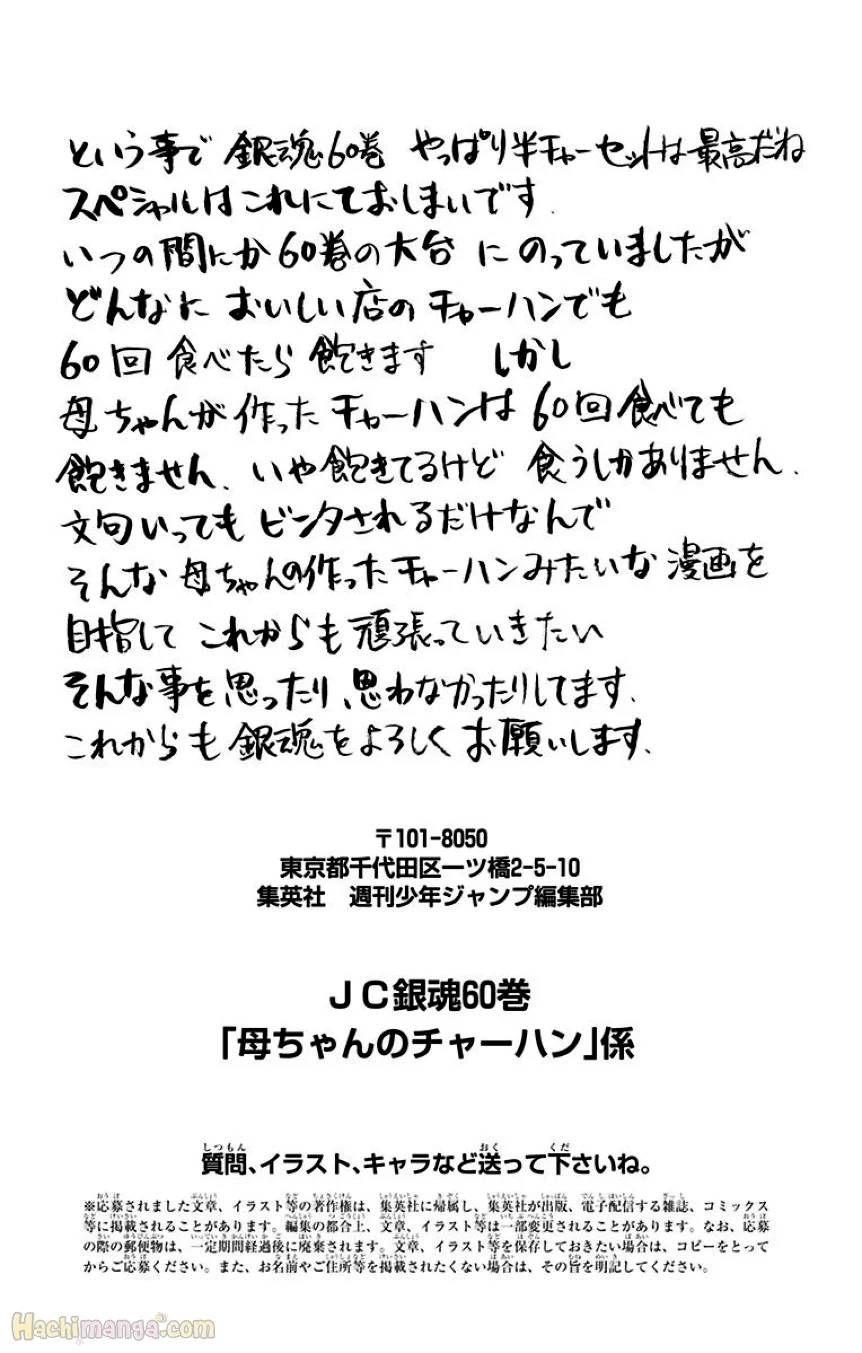 という事で 銀魂60巻 やっぱり半チャーセットは最高だね
スペシャルはこれにておしまいです.
いつの間にか60巻の大台 にのっていましたが
どんなに おいしい店の チャーハンでも
60回 食べたら 飽きます しかし
母ちゃんが作った チャーハンは 60回食べても
飽きません. いや飽きてるけど 食うしかありません.
文句いっても ビンタされるだけなんで
そんな 母ちゃんの作ったチャーハンみたいな 漫画を
目指して これからも 頑張っていきたい
そんな事を思ったり、思わなかったりしてます.
これからも 銀魂をよろしく お願いします.
〒101-8050
東京都千代田区一ツ橋2-5-10
集英社 週刊少年ジャンプ編集部
JC銀魂60巻
「母ちゃんのチャーハン」係
質問、イラスト、キャラなど送って下さいね。
※応募されました文章、イラスト等の著作権は、集英社に帰属し、集英社が出版、電子配信する雑誌、コミックス
等に掲載されることがあります。編集の都合上、文章、イラスト等は一部変更されることがあります。なお、応募
の際の郵便物は、一定期間経過後に廃棄されます。文章、イラスト等を保存しておきたい場合は、コピーをとって
からご応募ください。また、お名前やご住所等を掲載されたくない場合は、その旨を明記してください。
Hachimanga.com